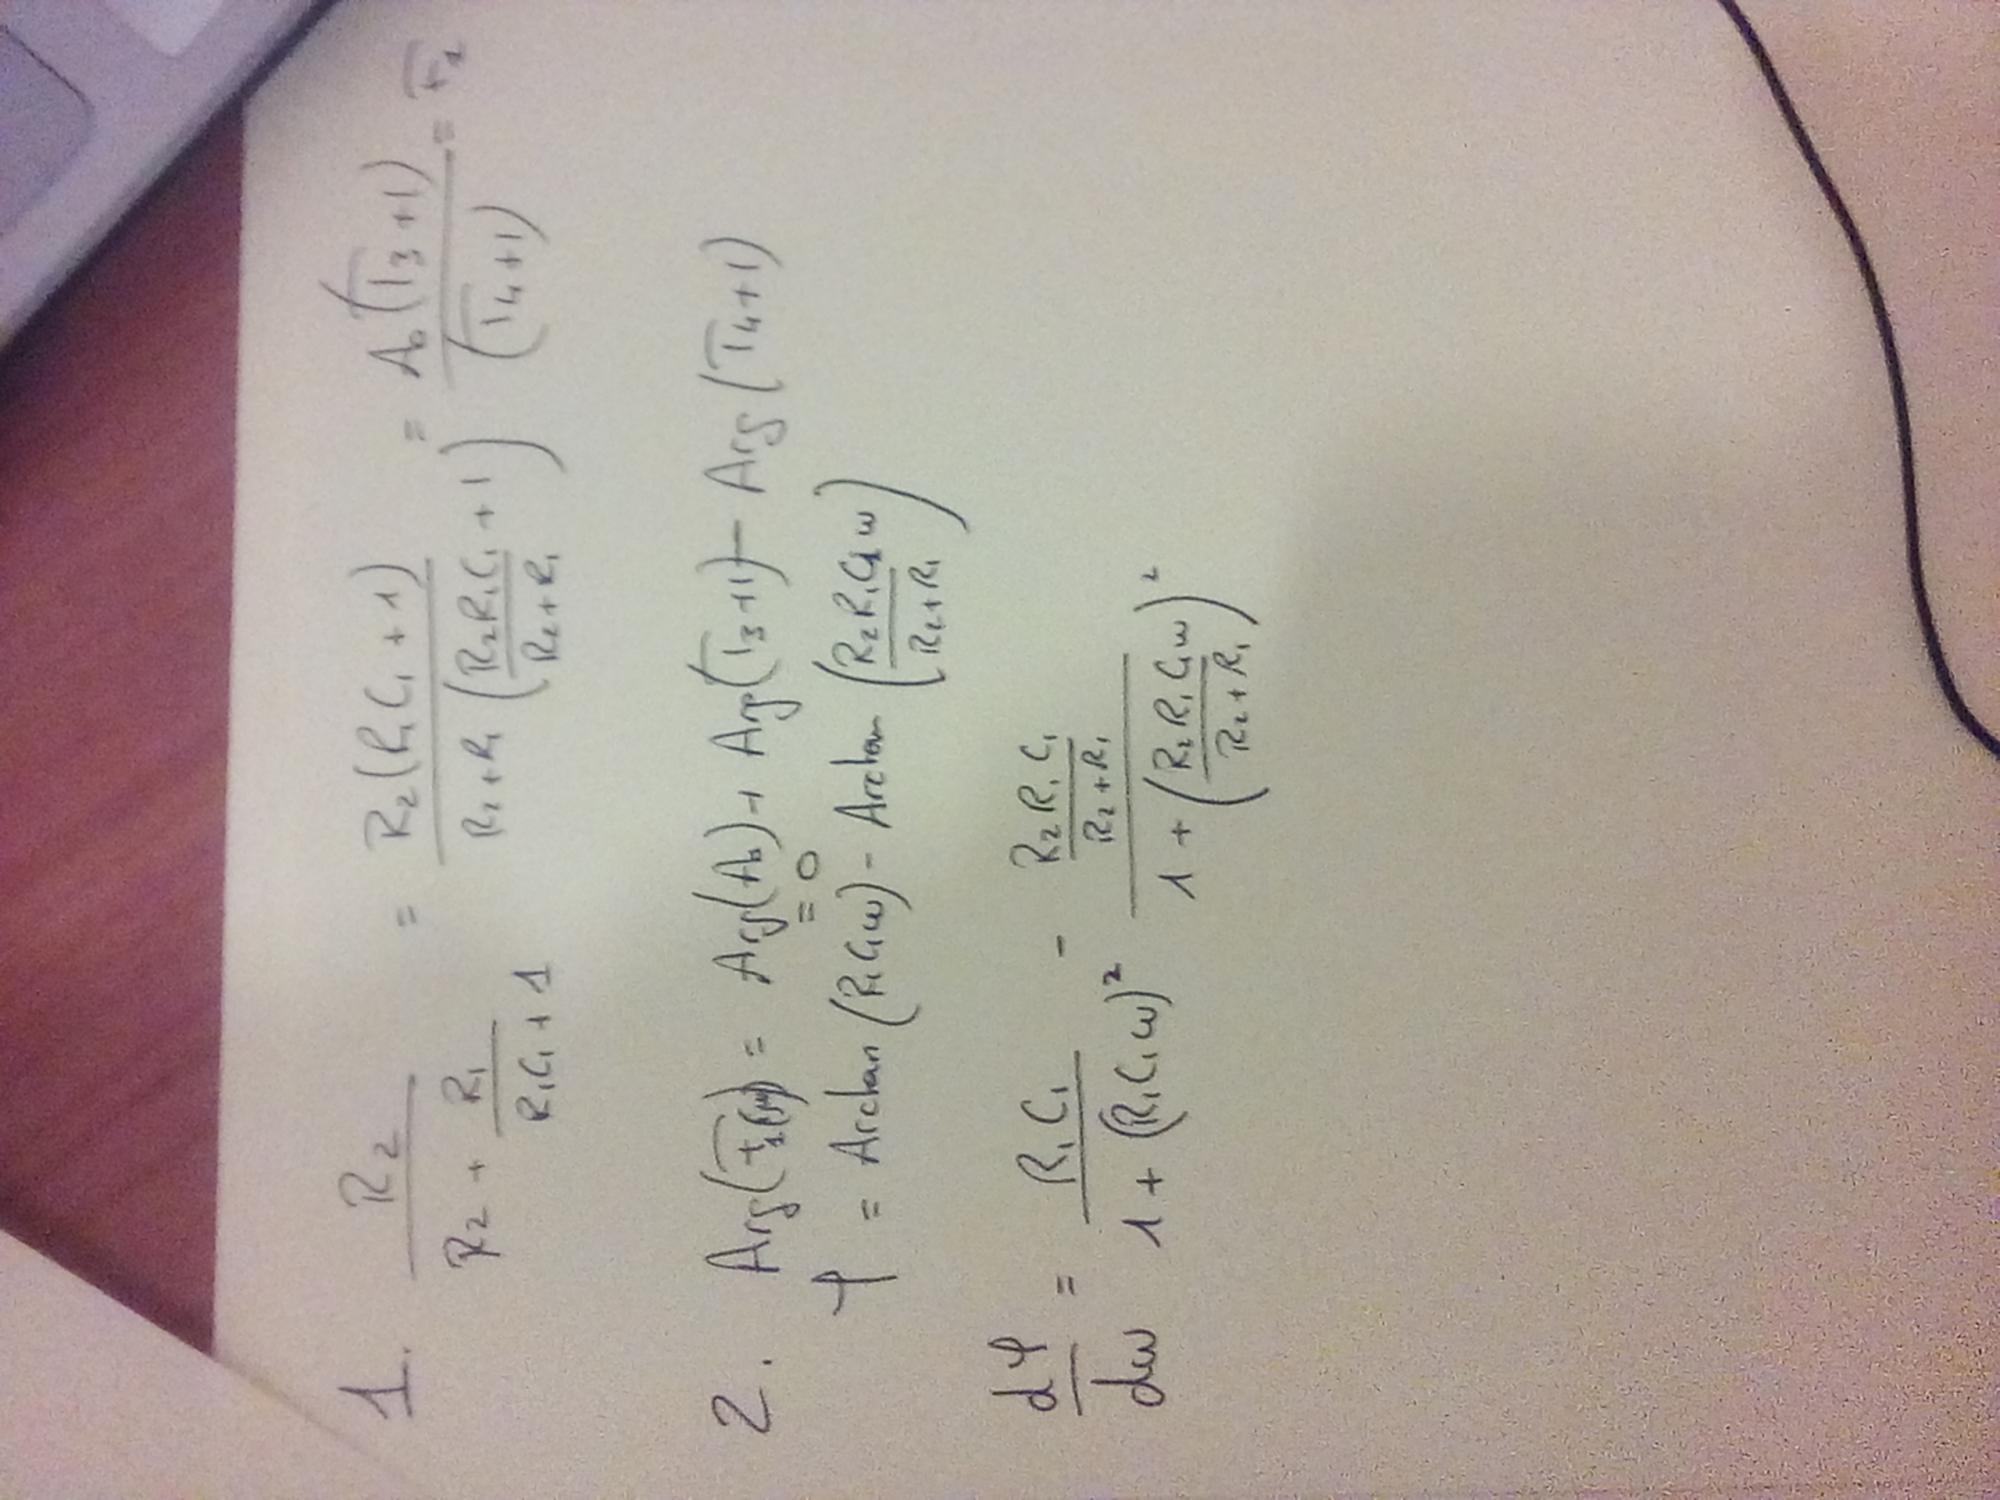 1. R₂ / (R₂ + R₁/(R₁C₁+1)) = R₂(R₁C₁+1) / (R₂+R₁ (R₂R₁C₁/(R₂+R₁) +1)) = A₀(T₃+1) / (T₄+1) = T₁
2. Arg(T₁(jω)) = Arg(A₀) + Arg(T₃+1) - Arg(T₄+1)
= 0
φ = Arctan(R₁C₁ω) - Arctan(R₂R₁C₁ω/(R₂+R₁))
dφ/dω = R₁C₁ / (1+(R₁C₁ω)²) - (R₂R₁C₁/(R₂+R₁)) / (1+(R₂R₁C₁ω/(R₂+R₁))²)